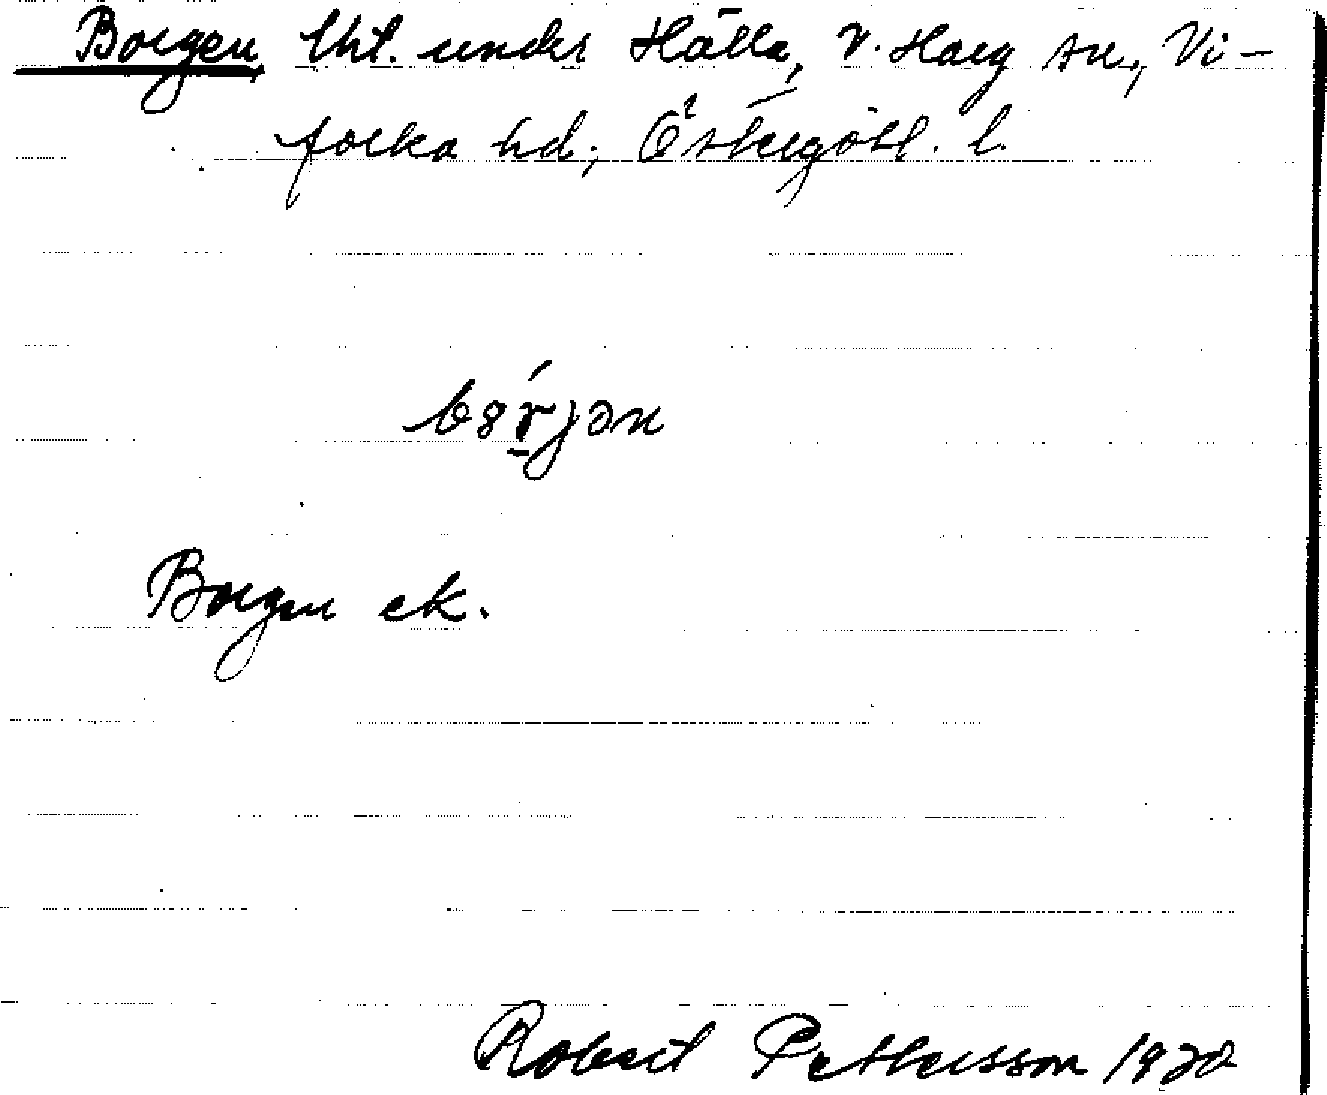 Borgen, lht. under Hälla, V. Harg sn., Vi-
folka hd., Östergötl. l.
bȣŕjən
Borgen ek.
Robert Pettersson 1920